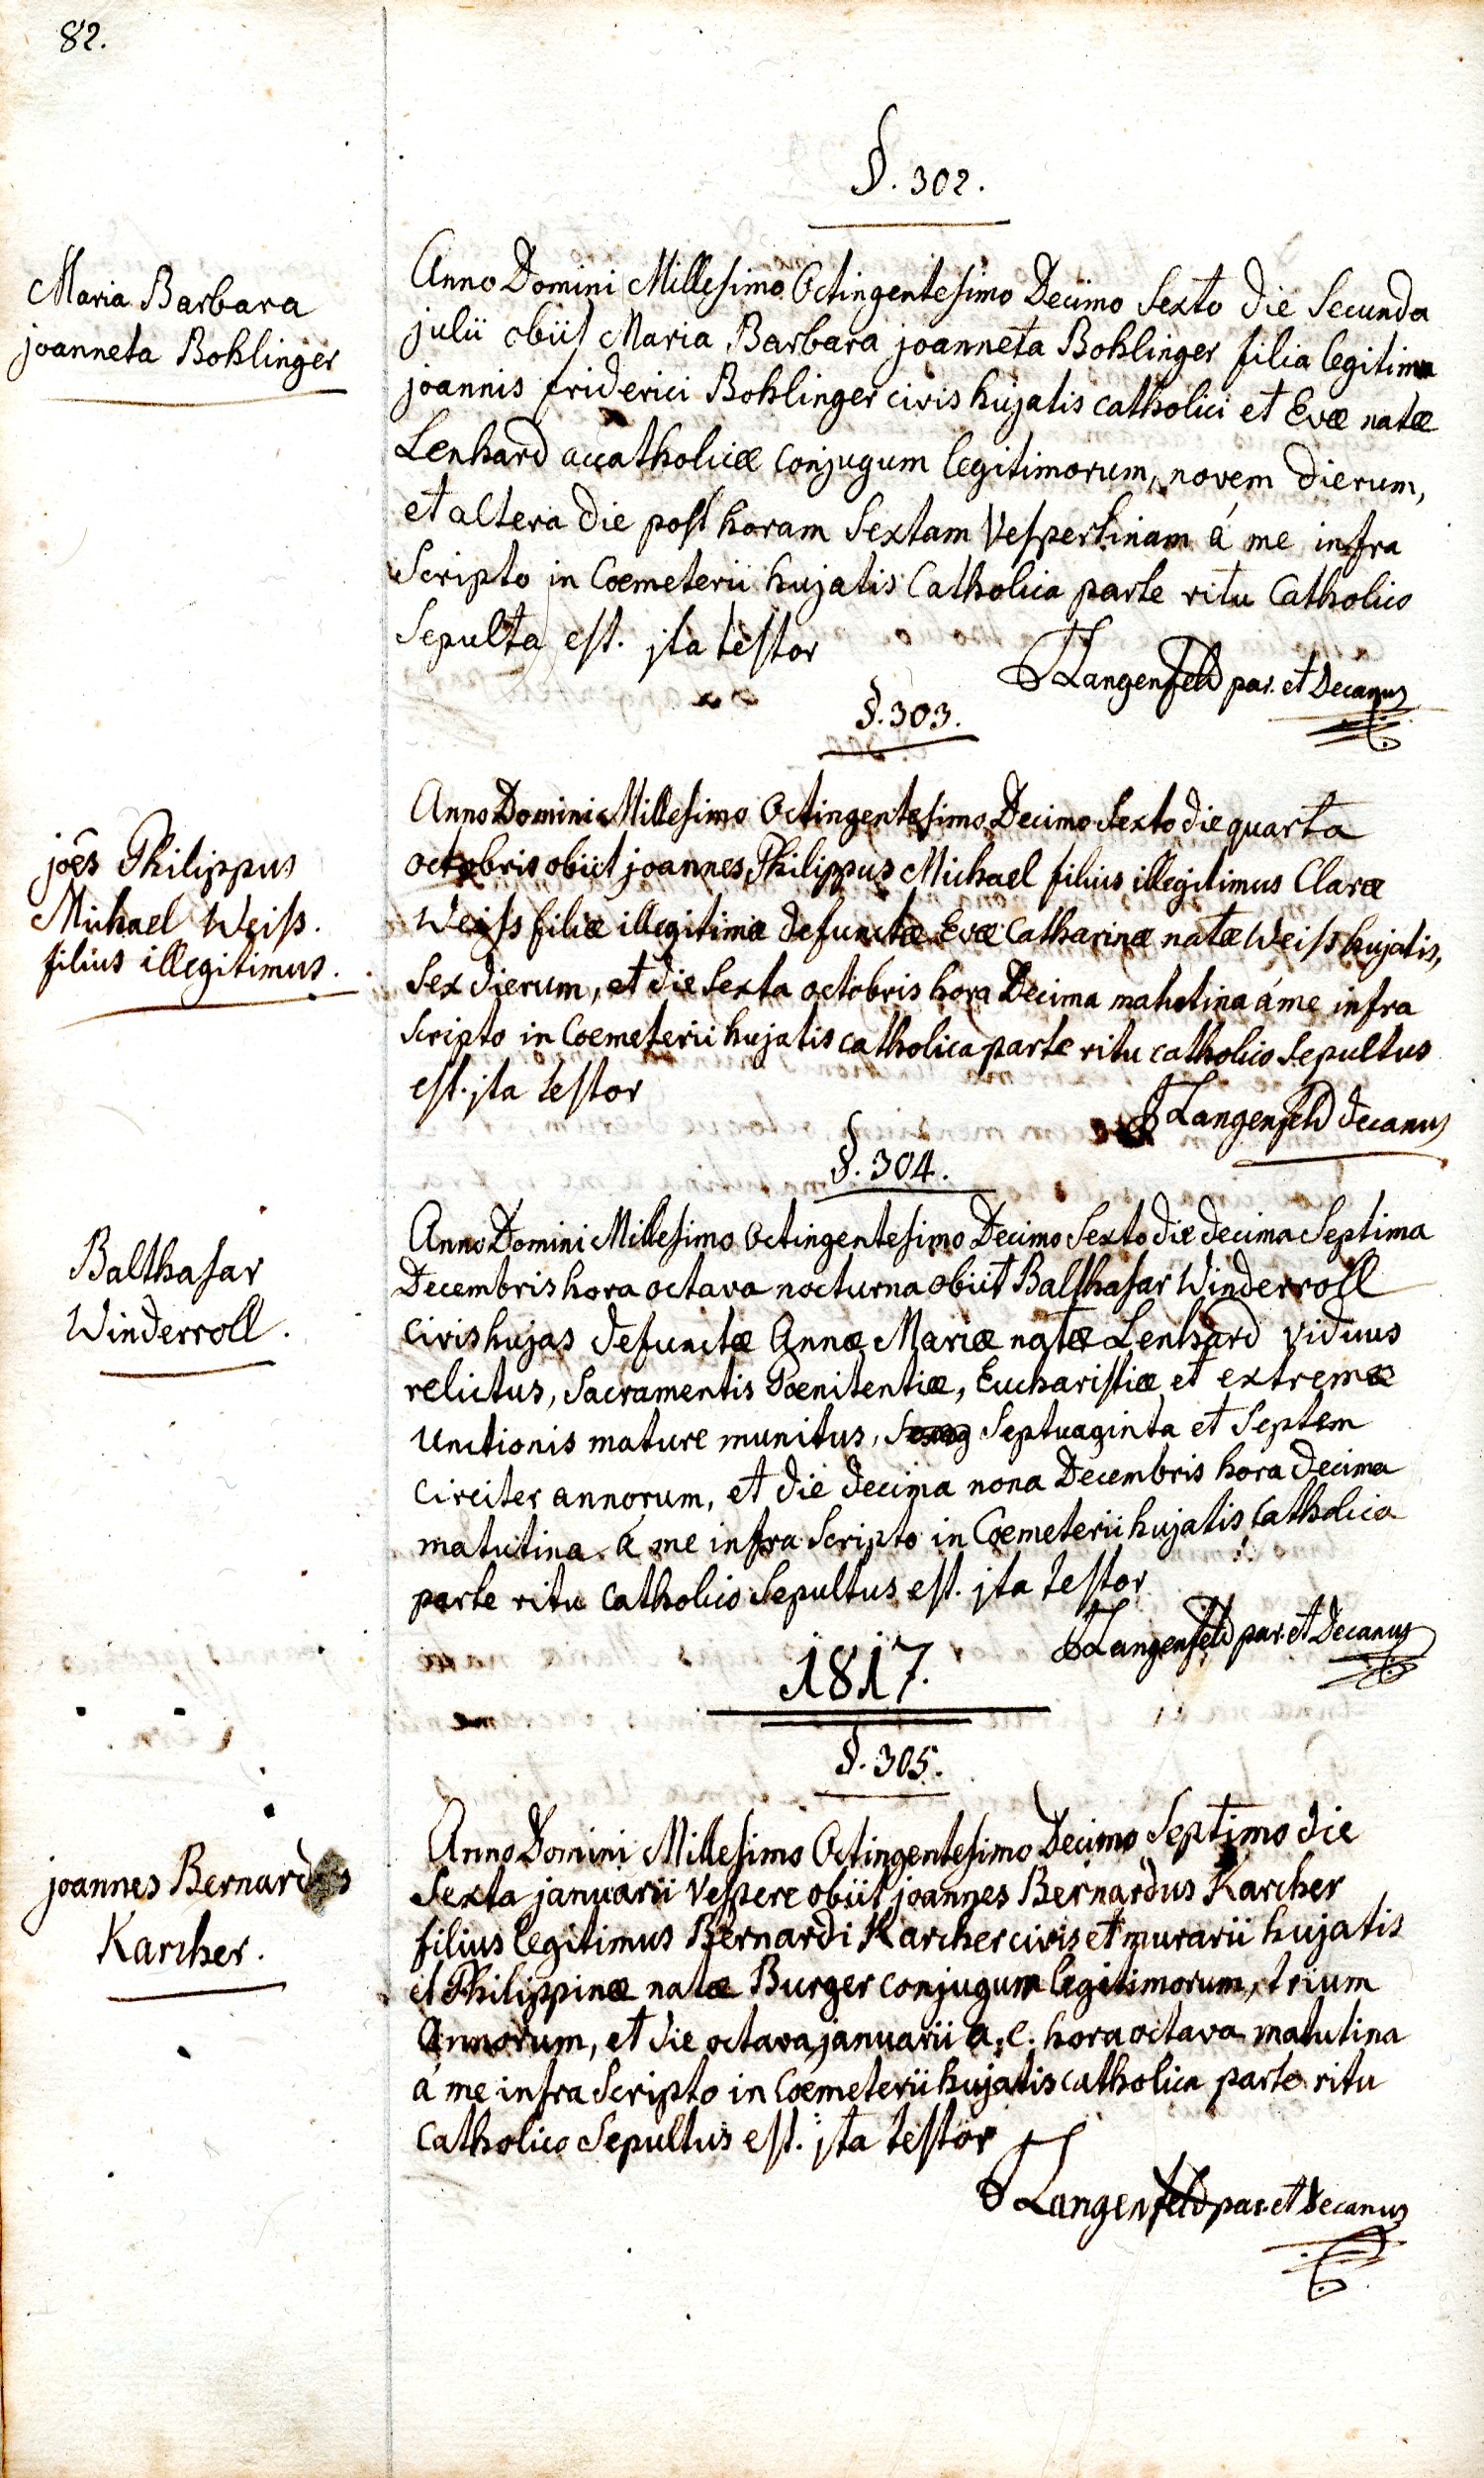 82.
§. 302.
Maria Barbara
joanneta Bohlinger
Anno Domini Millesimo Octingentesimo Decimo Sexto die Secunda
julii obiit Maria Barbara joanneta Bohlinger filia legitima
joannis friderici Bohlinger civis hujatis catholici et Evæ natæ
Lenhard accatholicæ conjugum legitimorum, novem dierum,
et altera die post horam Sextam Vespertinam á me infra
Scripto in Coemeterii hujatis Catholica parte ritu Catholico
Sepulta est. jta testor
Langenfeld par. et Decanus
§. 303.
joês Philippus
Michael Weiss.
filius illegitimus.
Anno Domini Millesimo Octingentesimo Decimo Sexto die quarta
octobris obiit joannes Philippus Michael filius illegitimus Claræ
Weiss filiæ illegitimæ defunctæ Evæ Catharinæ natæ Weiss hujatis,
Sex dierum, et die Sexta octobris hora Decima matutina á me infra
Scripto in Coemeterii hujatis catholica parte ritu catholico Sepultus
est. jta testor
Langenfeld decanus
§. 304.
Balthasar
Winderroll.
Anno Domini Millesimo Octingentesimo Decimo Sexto die decima Septima
Decembris hora octava nocturna obiit Balthasar Winderroll
civis hujas defunctæ Annæ Mariæ natæ Lenhard viduus
relictus, Sacramentis Poenitentiæ, Eucharistiæ et extremæ
Unctionis mature munitus, Septuaginta et Septem
circiter annorum, et die decima nona Decembris hora decima
matutina á me infra Scripto in Coemeterii hujatis Catholica
parte ritu Catholico Sepultus est. jta testor
Langenfeld par. et Decanus
1817.
§. 305.
joannes Bernardus
Karcher.
Anno Domini Millesimo Octingentesimo Decimo Septimo die
Sexta januarii Vespere obiit joannes Bernardus Karcher
filius legitimus Bernardi Karcher civis et murarii hujatis
et Philippinæ natæ Burger conjugum legitimorum, trium
Annorum, et die octava januarii a. c. hora octava matutina
á me infra Scripto in Coemeterii hujatis catholica parte ritu
Catholico Sepultus est. jta testor
Langenfeld par. et Decanus